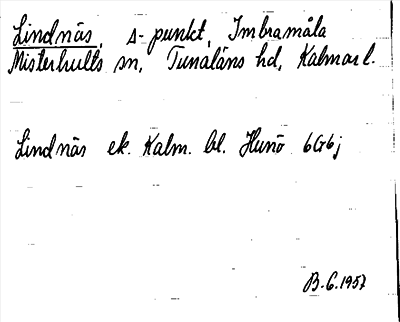 Lindnäs, s-punkt, Imbramåla
Misterhults sn, Tunaläns hd, Kalmar l.
Lindnäs ek. Kalm. bl. Hunö 6G6j
B.G.1957